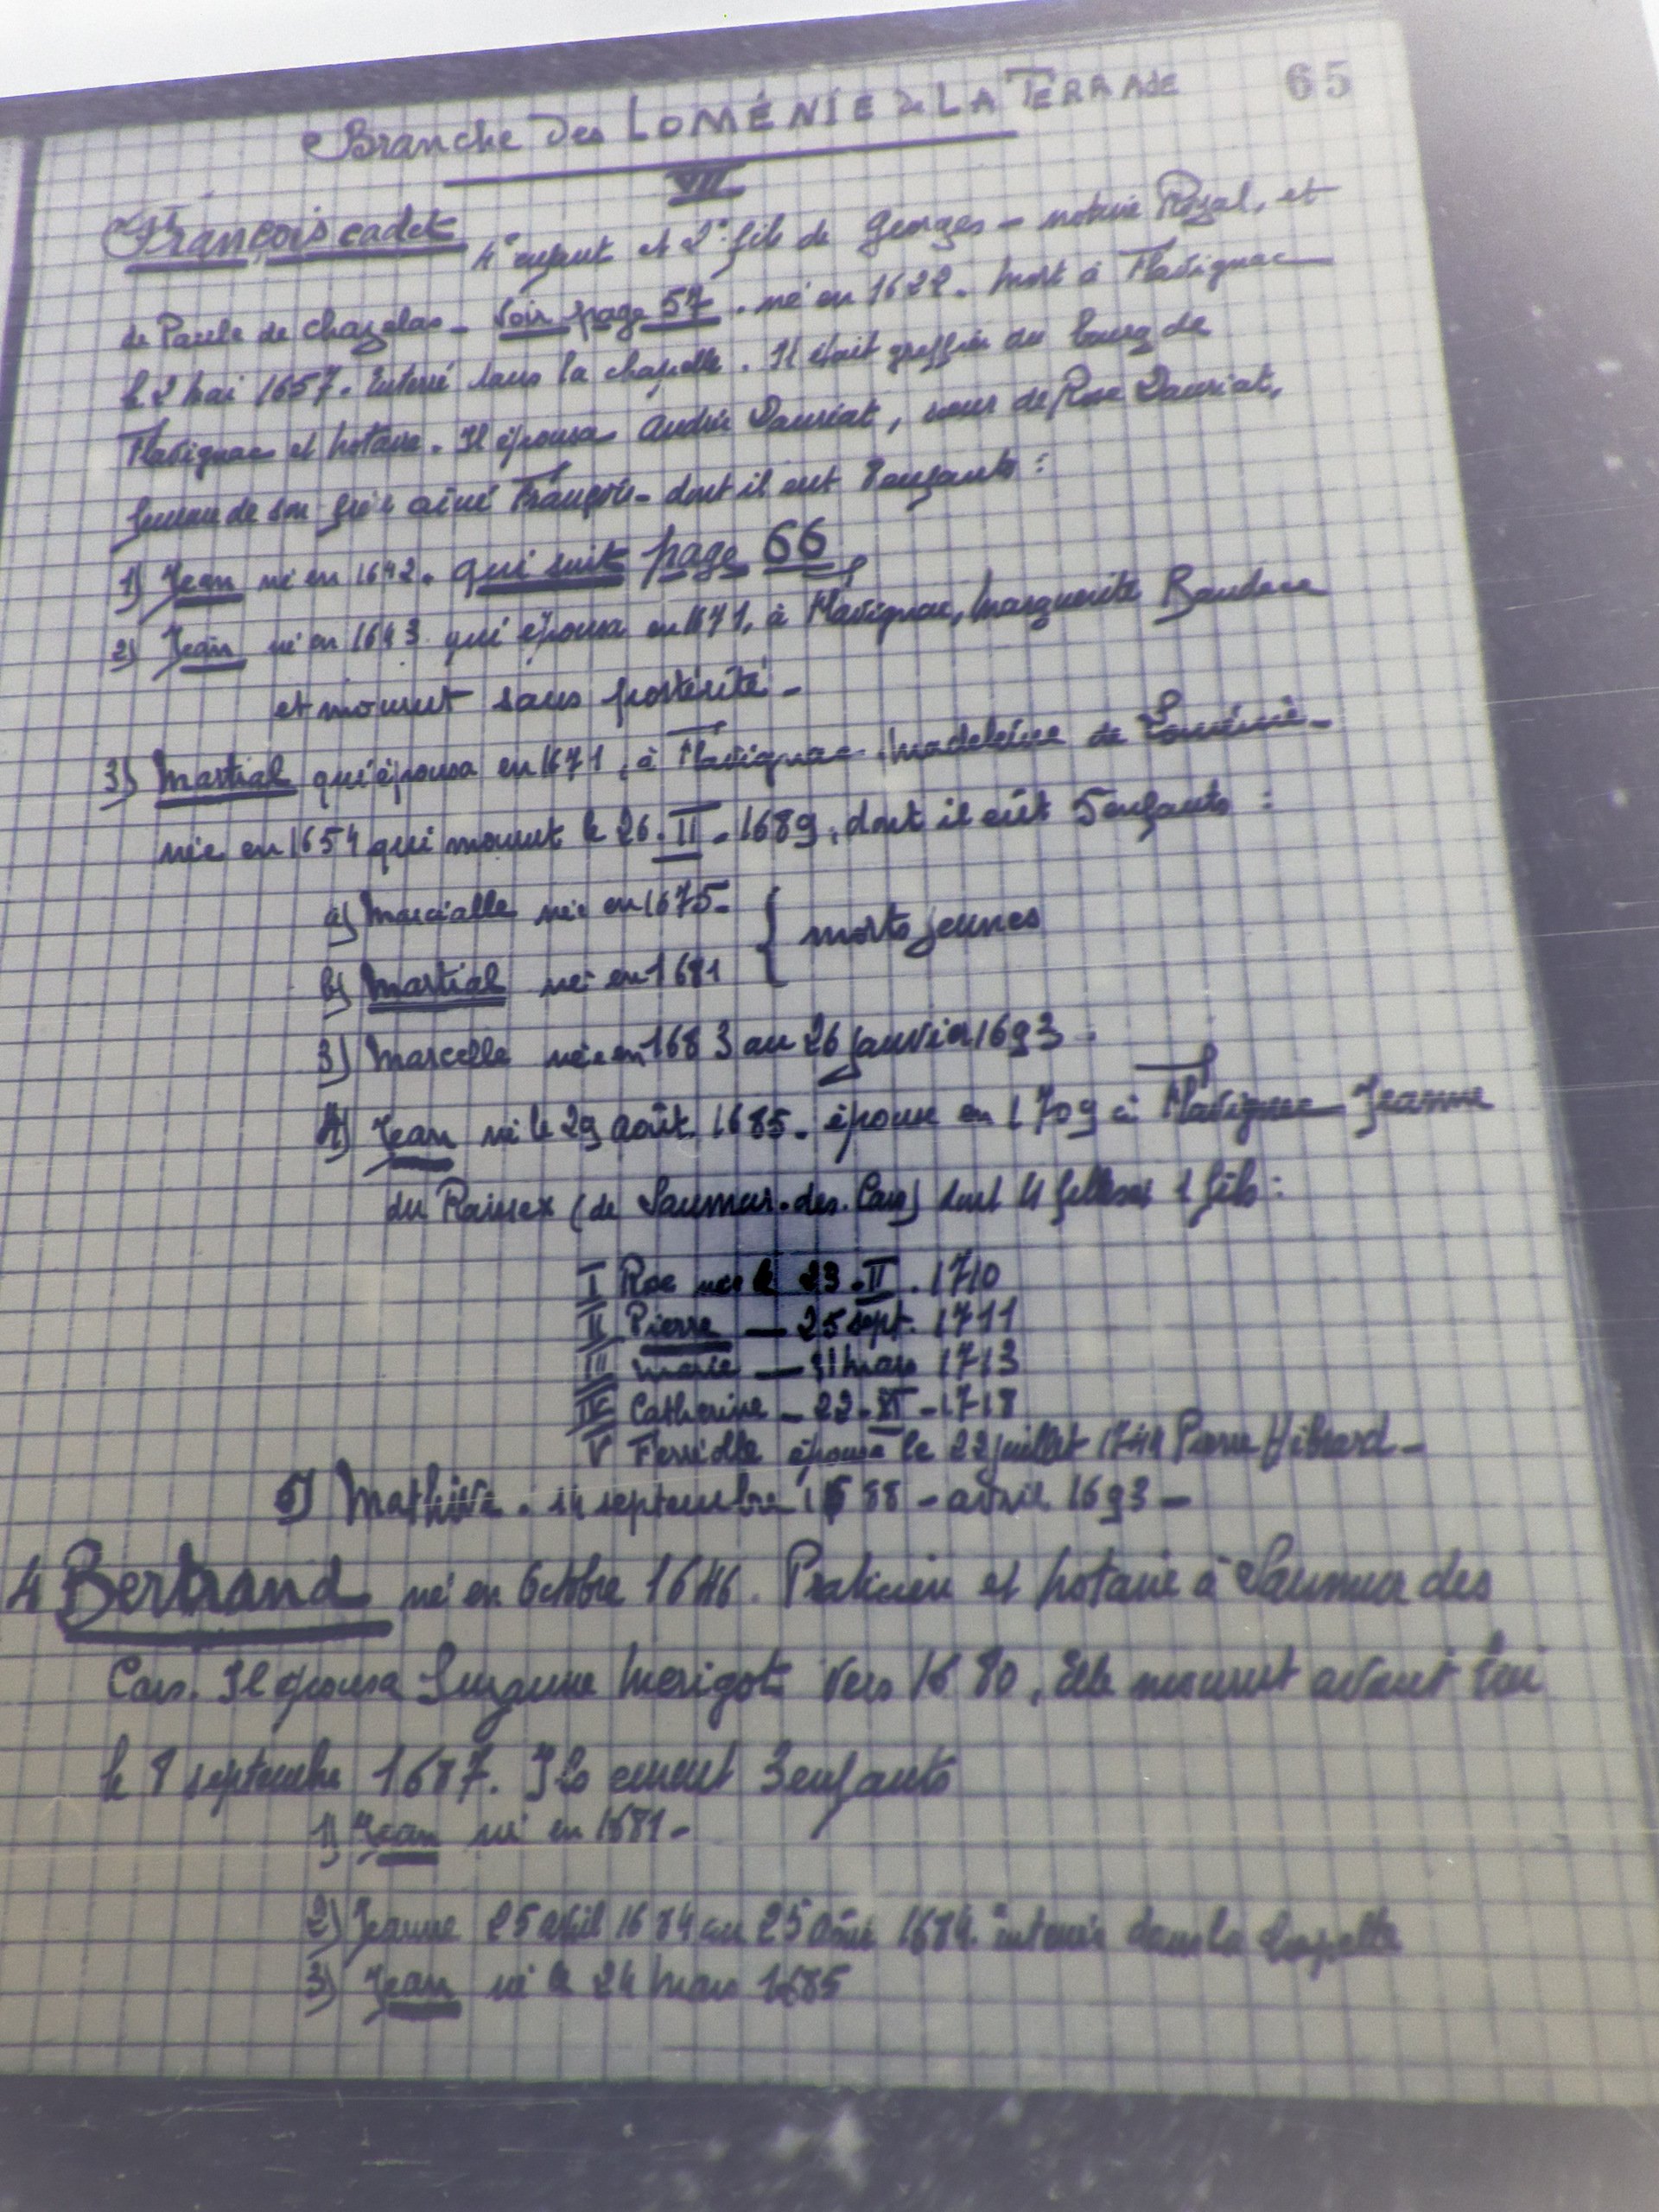 65
Branche des LOMÉNIE de LA TERRADE
VII
François cadet 4e enfant et 2e fils de Georges - notaire Royal, et
de Paule de Chazelas - Voir page 57. né en 1622. Mort à Flavignac
le 2 Mai 1657. Enterré dans la chapelle. Il était greffier du bourg de
Flavignac et notaire. Il épousa Andrée Dauriat, soeur de Rose Dauriat,
femme de son frère aîné François - dont il eut 8 enfants :
1) Jean né en 1642. qui suit page 66
2) Jean né en 1643 qui épousa en 1671, à Flavignac, Marguerite
et mourut sans postérité -
3) Martial qui épousa en 1671, à Flavignac Madeleine de Loménie -
née en 1654 qui mourut le 26. II. 1689, dont il eût 5 enfants :
a) Marcialle née en 1675 -
{ morts jeunes
b) Martial né en 1681
3) Marcelle née en 1683 au 26 janvier 1693.
4) Jean né le 29 août 1685. épouse en 1709 à Flavignac Jeanne
du Raissex (de Saumur-des-Cars) dont 4 filles et 1 fils :
I Rose née le 23. II. 1710
II Pierre — 25 sept. 1711
III Marie — 31 mars 1713
IV Catherine - 22. XI - 1718
V Ferréolle épousa le 22 juillet 1744 Pierre Hibrard -
5) Mathive. 14 septembre 1688 - avril 1693 -
4 Bertrand né en Octobre 1646. Praticien et notaire à Saumur des
Cars. Il épousa Suzanne Merigot vers 1680, Elle mourut avant lui
le 8 septembre 1687. Ils eurent 3 enfants
1) Jean né en 1681 -
2) Jeanne 25 avril 1684 au 25 août 1684. enterrée dans la chapelle
3) Jean né le 24 Mars 1685